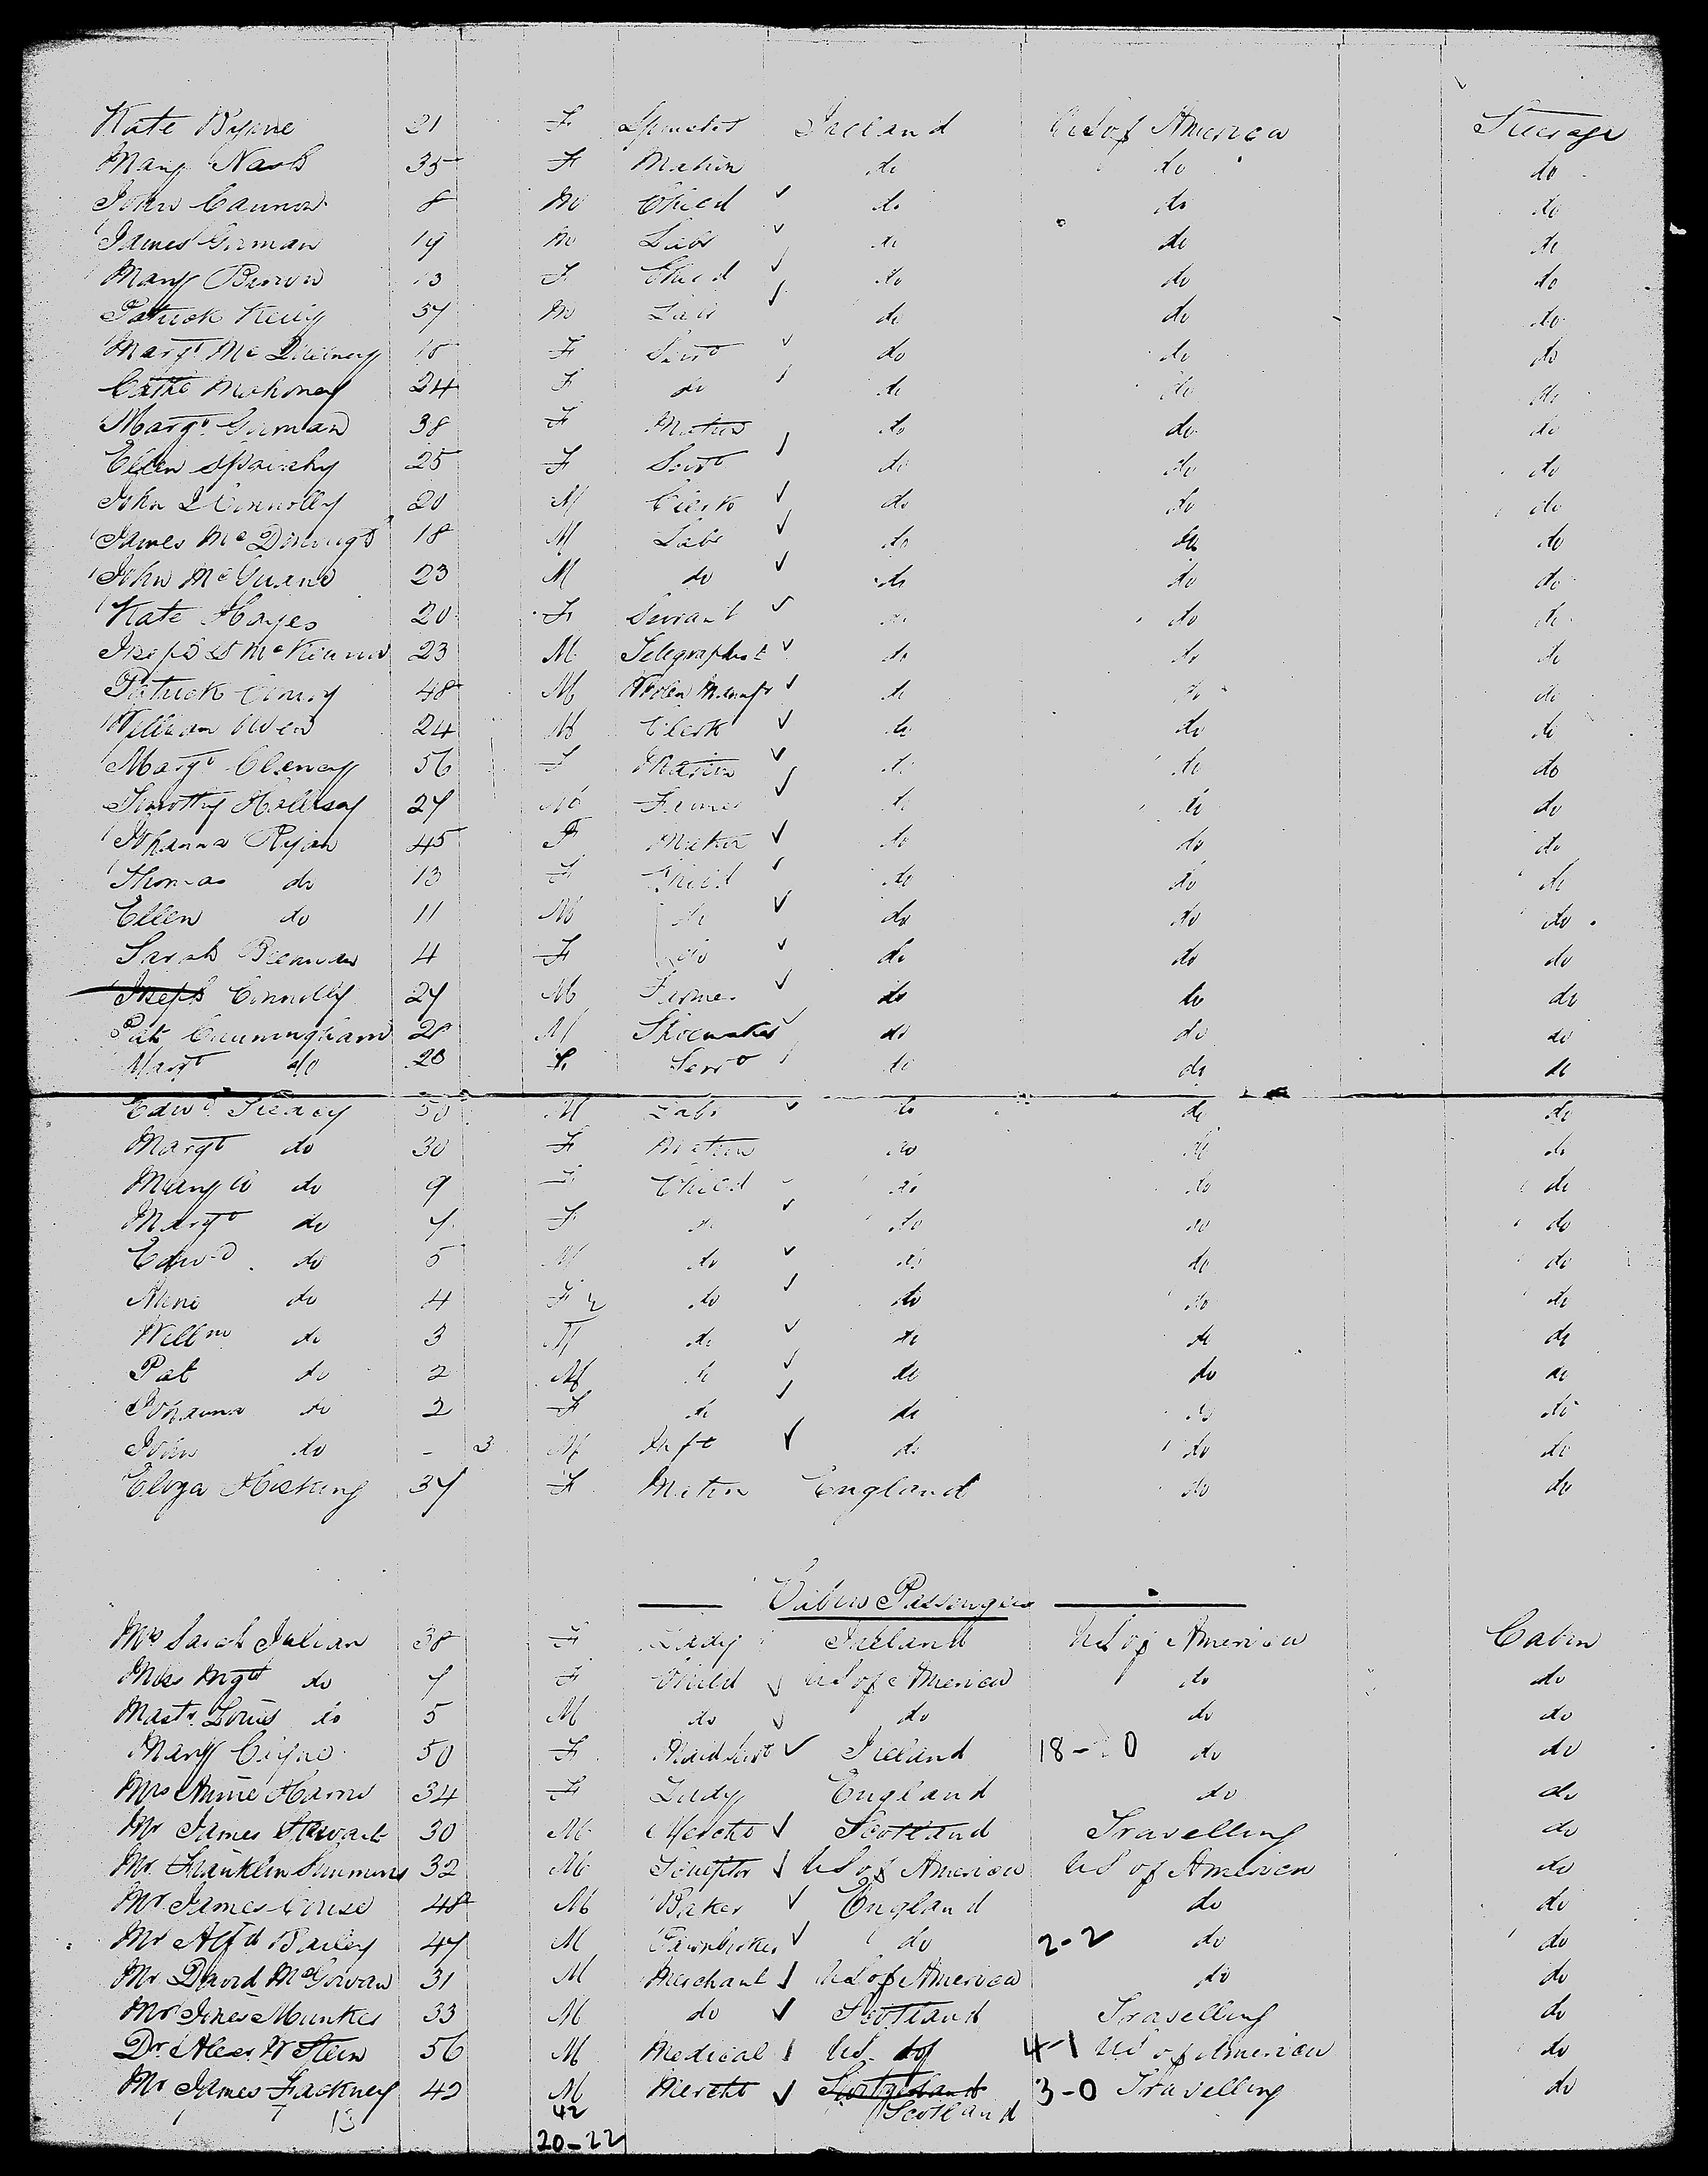 Kate Byrne 21 F Spinster Ireland U S of America Steerage
Mary Nash 35 F Matron do do do
John Cannon 8 M Child do do do
James Gorman 19 M Labr do do do
Mary Brown 13 F Child do do do
Patrick Kelly 37 M Labr do do do
Margt Mc F Servt do do do
Cathe Mahoney 24 F do do do do
Margt Gorman 38 F Matron do do do
Ellen 25 F Servt do do do
John J Connolly 20 M Clerk do do do
James McDonough 18 M Labr do do do
John McGuane 23 M do do do do
Kate Hayes 20 F Servant do do do
Joseph McKenna 23 M Telegraphist do do do
Patrick 48 M Woolen Manufr do do do
William Owen 24 M Clerk do do do
Margt Clancy 56 F Matron do do do
Timothy 27 M Farmer do do do
Johanna Ryan 45 F Matron do do do
Thomas do 13 F Child do do do
Ellen do 11 M do do do do
Sarah 4 F do do do do
Joseph Connolly 27 M Farmer do do do
Pat Cunningham 28 M Shoemaker do do do
Margt do 20 F Servt do do do
Edwd Treacy 50 M Labr do do do
Margt do 30 F Matron do do do
Mary do 9 F Child do do do
Margt do 7 F do do do do
Edwd do 5 M do do do do
do 4 F do do do do
Willm do 3 M do do do do
Pat do 2 M do do do do
Johanna do 2 F do do do do
John do - 3 M Inft do do do
Eliza Hosking 37 F Matron England do do
Cabin Passengers
Mrs Sarah Julian 38 F Lady Ireland U S of America Cabin
Miss Mgt do 7 F Child U S of America do do
Mastr Louis do 5 M do do do do
Mary 50 F Maid Servt Ireland do do
Mrs Annie Harris 34 F Lady England do do
Mr James Stewart 30 M Mercht Scotland Travelling do
Mr Franklin Simmons 32 M Sculptor U S of America U S of America do
Mr James Cruse 48 M Baker England do do
Mr Alfd Bailey 47 M Pawnbroker do 2-2 do do
Mr David McGowan 31 M Merchant U S of America do do
Mr James 33 M do Scotland Travelling do
Dr Alexr W Stein 56 M Medical U S of 4-1 U S of America do
Mr James Fackney 42 M Mercht Switzerland 3-0 Travelling do
7 13 42 Scotland
20-22